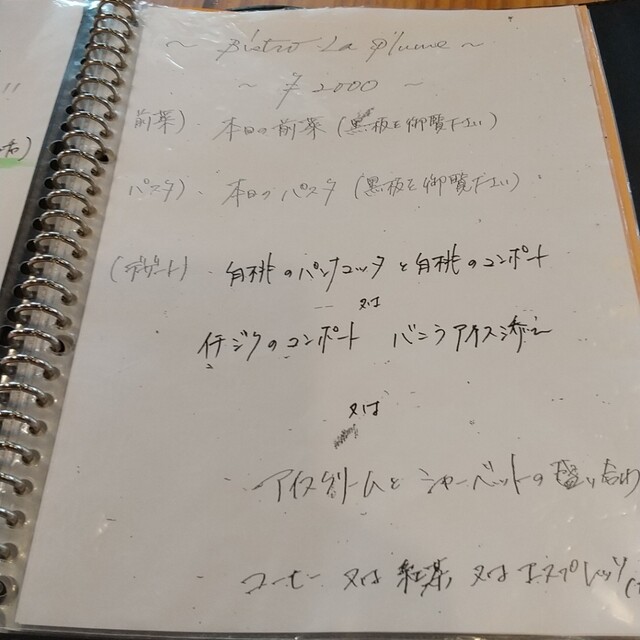 ~ Bistro La Plume ~
~ ¥2000 ~
前菜) 本日の前菜 (黒板を御覧下さい)
パスタ) 本日のパスタ (黒板を御覧下さい)
(デザート) 白桃のパンナコッタと白桃のコンポート
又は
イチジクのコンポート バニラアイス添え
又は
アイスクリームとシャーベットの盛り合わ
コーヒー 又は 紅茶 又は エスプレッソ (